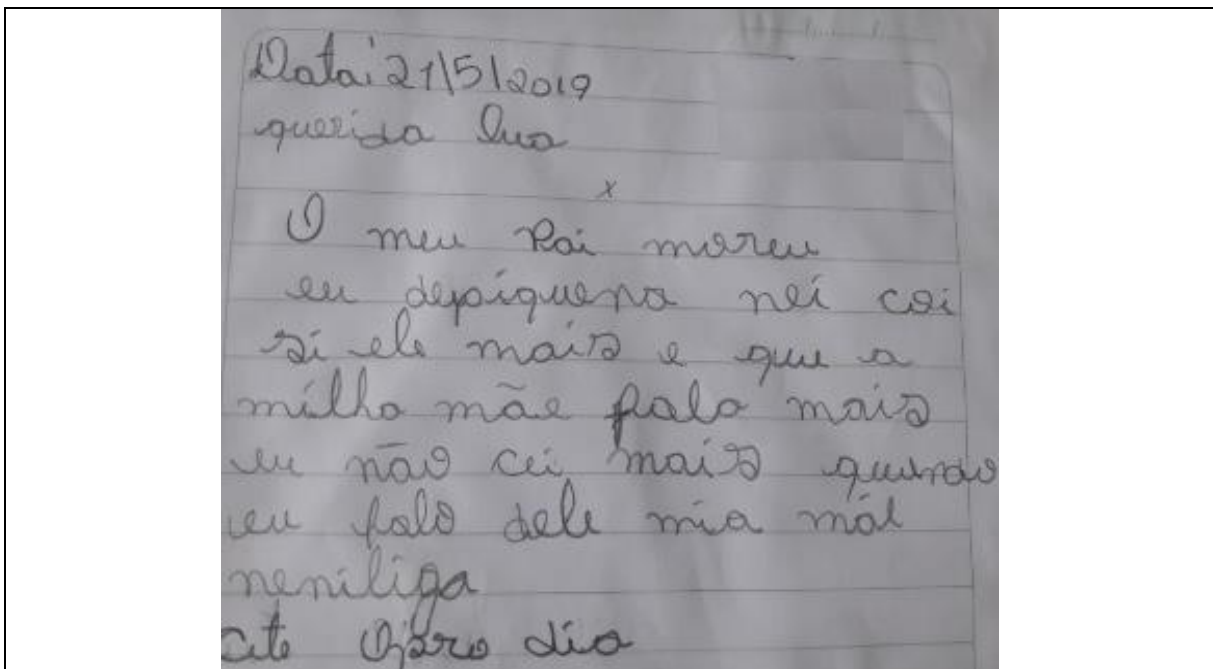 Data: 21/5/2019
querida lua
x
O meu Pai moreu
eu depiquena nei coi
si ele mais e que a
milha mãe fala mais
eu não cei mais quando
eu falo dele mia mãe
neniliga
ate dia